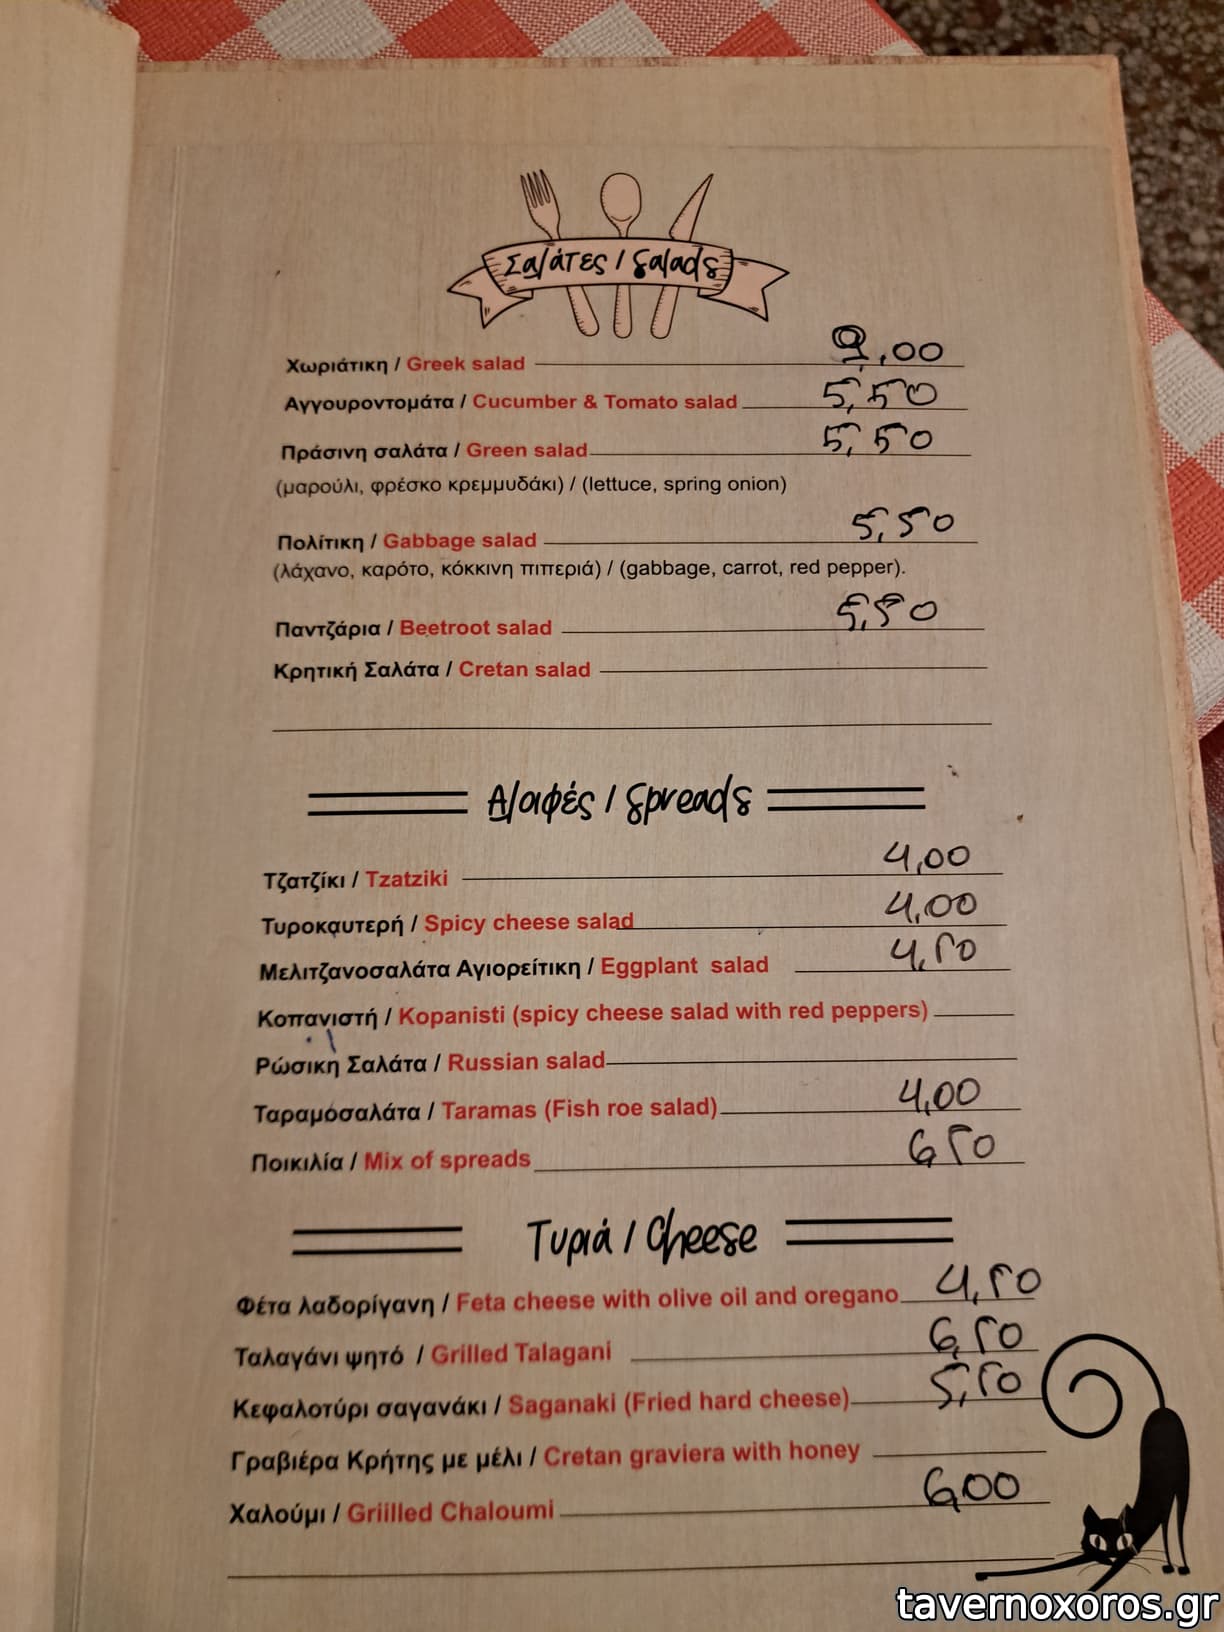 Σαλάτες / Salads
Χωριάτικη / Greek salad 9,00
Αγγουροντομάτα / Cucumber & Tomato salad 5,50
Πράσινη σαλάτα / Green salad 5,50
(μαρούλι, φρέσκο κρεμμυδάκι) / (lettuce, spring onion)
Πολίτικη / Gabbage salad 5,50
(λάχανο, καρότο, κόκκινη πιπεριά) / (gabbage, carrot, red pepper).
Παντζάρια / Beetroot salad 5,50
Κρητική Σαλάτα / Cretan salad
Αλοιφές / Spreads
Τζατζίκι / Tzatziki 4,00
Τυροκαυτερή / Spicy cheese salad 4,00
Μελιτζανοσαλάτα Αγιορείτικη / Eggplant salad 4,50
Κοπανιστή / Kopanisti (spicy cheese salad with red peppers)
Ρώσικη Σαλάτα / Russian salad
Ταραμοσαλάτα / Taramas (Fish roe salad) 4,00
Ποικιλία / Mix of spreads 6,50
Τυριά / Cheese
Φέτα λαδορίγανη / Feta cheese with olive oil and oregano 4,50
Ταλαγάνι ψητό / Grilled Talagani 6,50
Κεφαλοτύρι σαγανάκι / Saganaki (Fried hard cheese) 5,50
Γραβιέρα Κρήτης με μέλι / Cretan graviera with honey
Χαλούμι / Griilled Chaloumi 6,00
tavernoxoros.gr